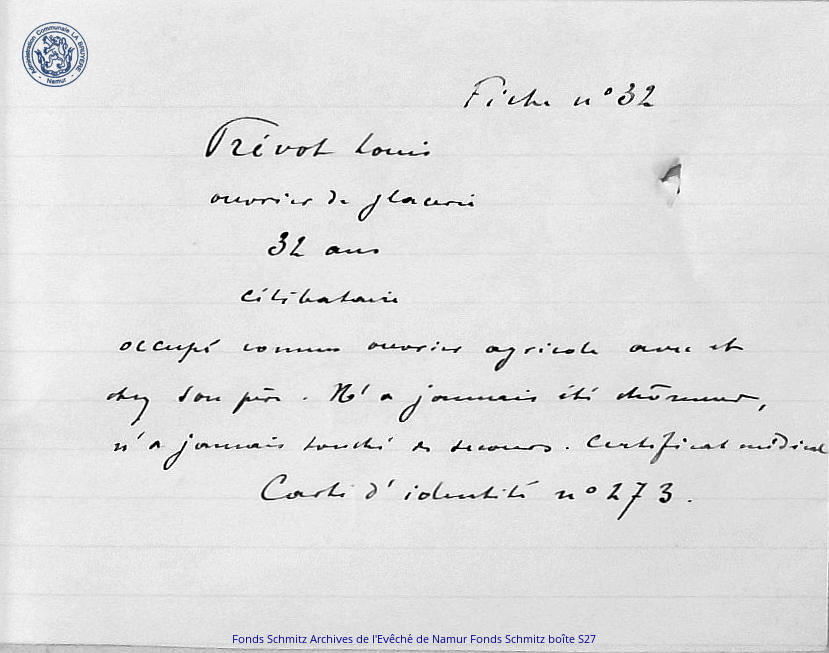 Administration Communale LA BRUYERE
- Namur -
Fiche n° 32
Prévot Louis
ouvrier de glacerie
32 ans
célibataire
occupé comme ouvrier agricole avec et
chez son père. N'a jamais été chômeur,
n'a jamais touché de secours. Certificat médical
Carte d'identité n° 273.
Fonds Schmitz Archives de l'Evêché de Namur Fonds Schmitz boîte S27